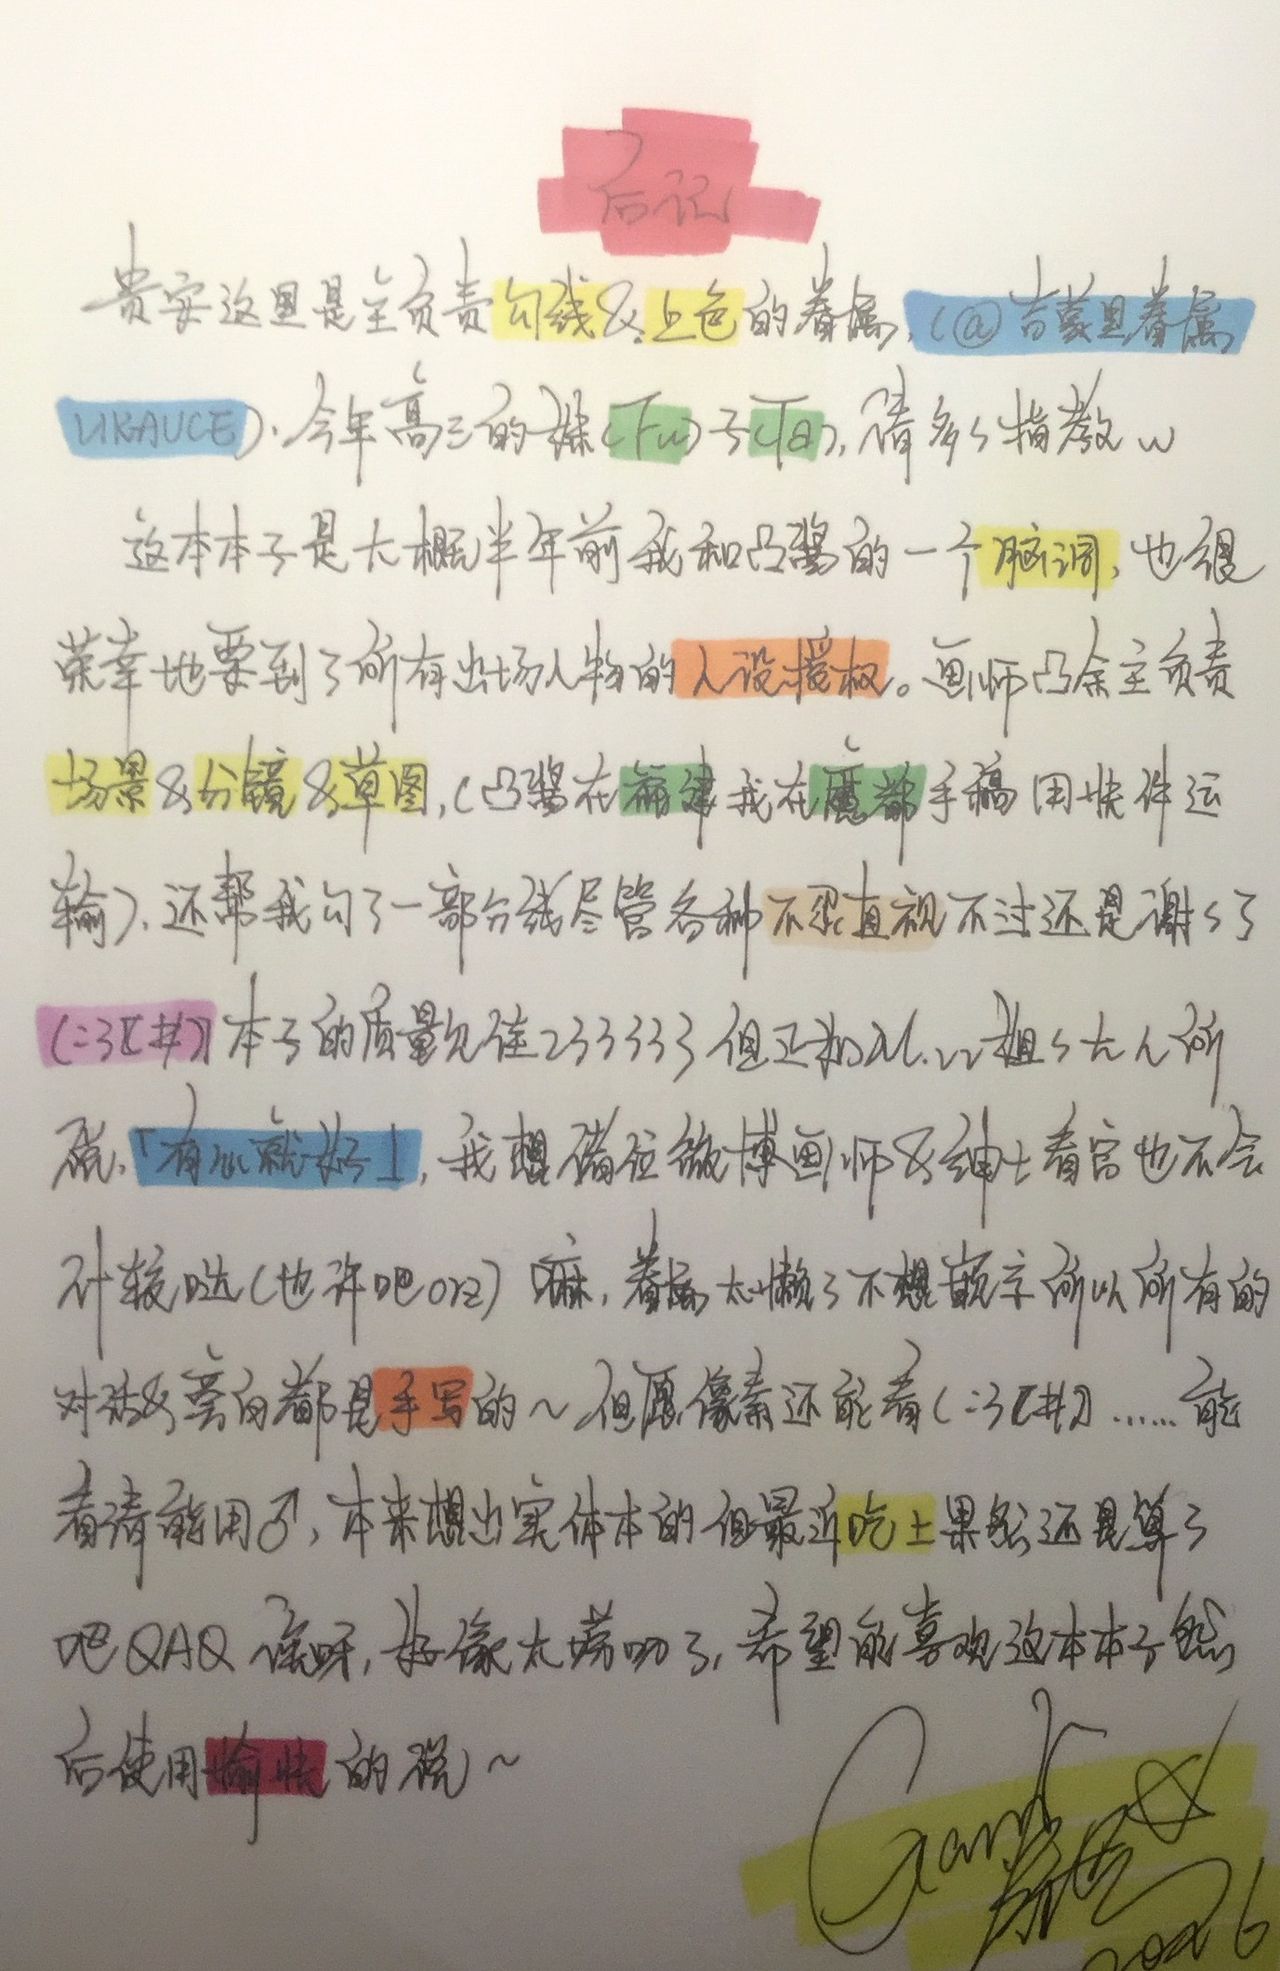 后记
贵安这里是主负责勾线&上色的眷属,(@吉蒙里眷属
UKAUCE).今年高三的妹(Fu)子(Ta),请多々指教w
这本本子是大概半年前我和凸酱的一个脑洞,也很
荣幸地要到了所有出场人物的人设授权。画师凸余主负责
场景&分镜&草图,(凸酱在福建我在魔都手稿用快件运
输).还帮我勾了一部分线尽管各种不忍直视不过还是谢々了
(:3[#]本子的质量欠佳233333但正如 姐々大人所
说.「有心就好」,我想诸位微博画师&绅士看官也不会
计较哒(也许吧orz)嘛,眷属太懒了不想嵌字所以所有的
对话&旁白都是手写的~但愿像素还能看(:3[#]......能
看请能用♂,本来想出实体本的但最近吃土果然还是算了
吧QAQ 诶呀,好像太唠叨了,希望能喜欢这本本子然
后使用愉快的说~